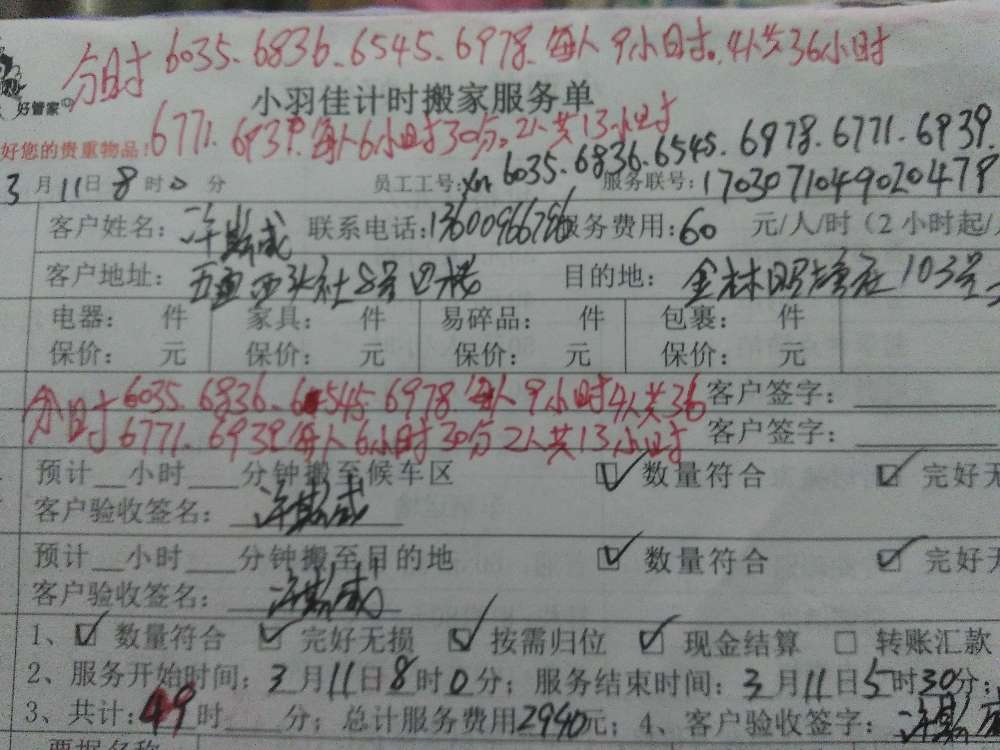 分时 6035、6836、6545、6978、每人9小时。4人共36小时
好管家
小羽佳计时搬家服务单
好您的贵重物品: 6771、6939、每人6小时30分。2人共13小时
3月11日8时0分 员工工号: 6035、6836、6545、6978、6771、6939、
服务联号:170307104902047
客户姓名: 联系电话:13600966786 服务费用:60 元/人/时(2小时起/
客户地址: 西头社8号 目的地: 103号
电器: 件 家具: 件 易碎品: 件 包裹: 件
保价: 元 保价: 元 保价: 元 保价: 元
分时 6035、6836、6545、6978、每人9小时4人共36 客户签字:
6771、6939、每人6小时30分2人共13小时 客户签字:
预计__小时___分钟搬至候车区 ☑ 数量符合 ☑ 完好无
客户验收签名:
预计__小时___分钟搬至目的地 ☑ 数量符合 ☑ 完好无
客户验收签名:
1、☑ 数量符合 ☑ 完好无损 ☑ 按需归位 ☑ 现金结算 □ 转账汇款
2、服务开始时间:3月11日8时0分;服务结束时间:3月11日5时30分;
3、共计:49时___分;总计服务费用2940元;4、客户验收签字:
票据名称